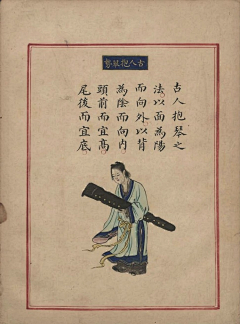 古人抱琴勢
古人抱琴之
法以面為陽
而向外以背
為陰而向內
頭前而宜高
尾後而宜底